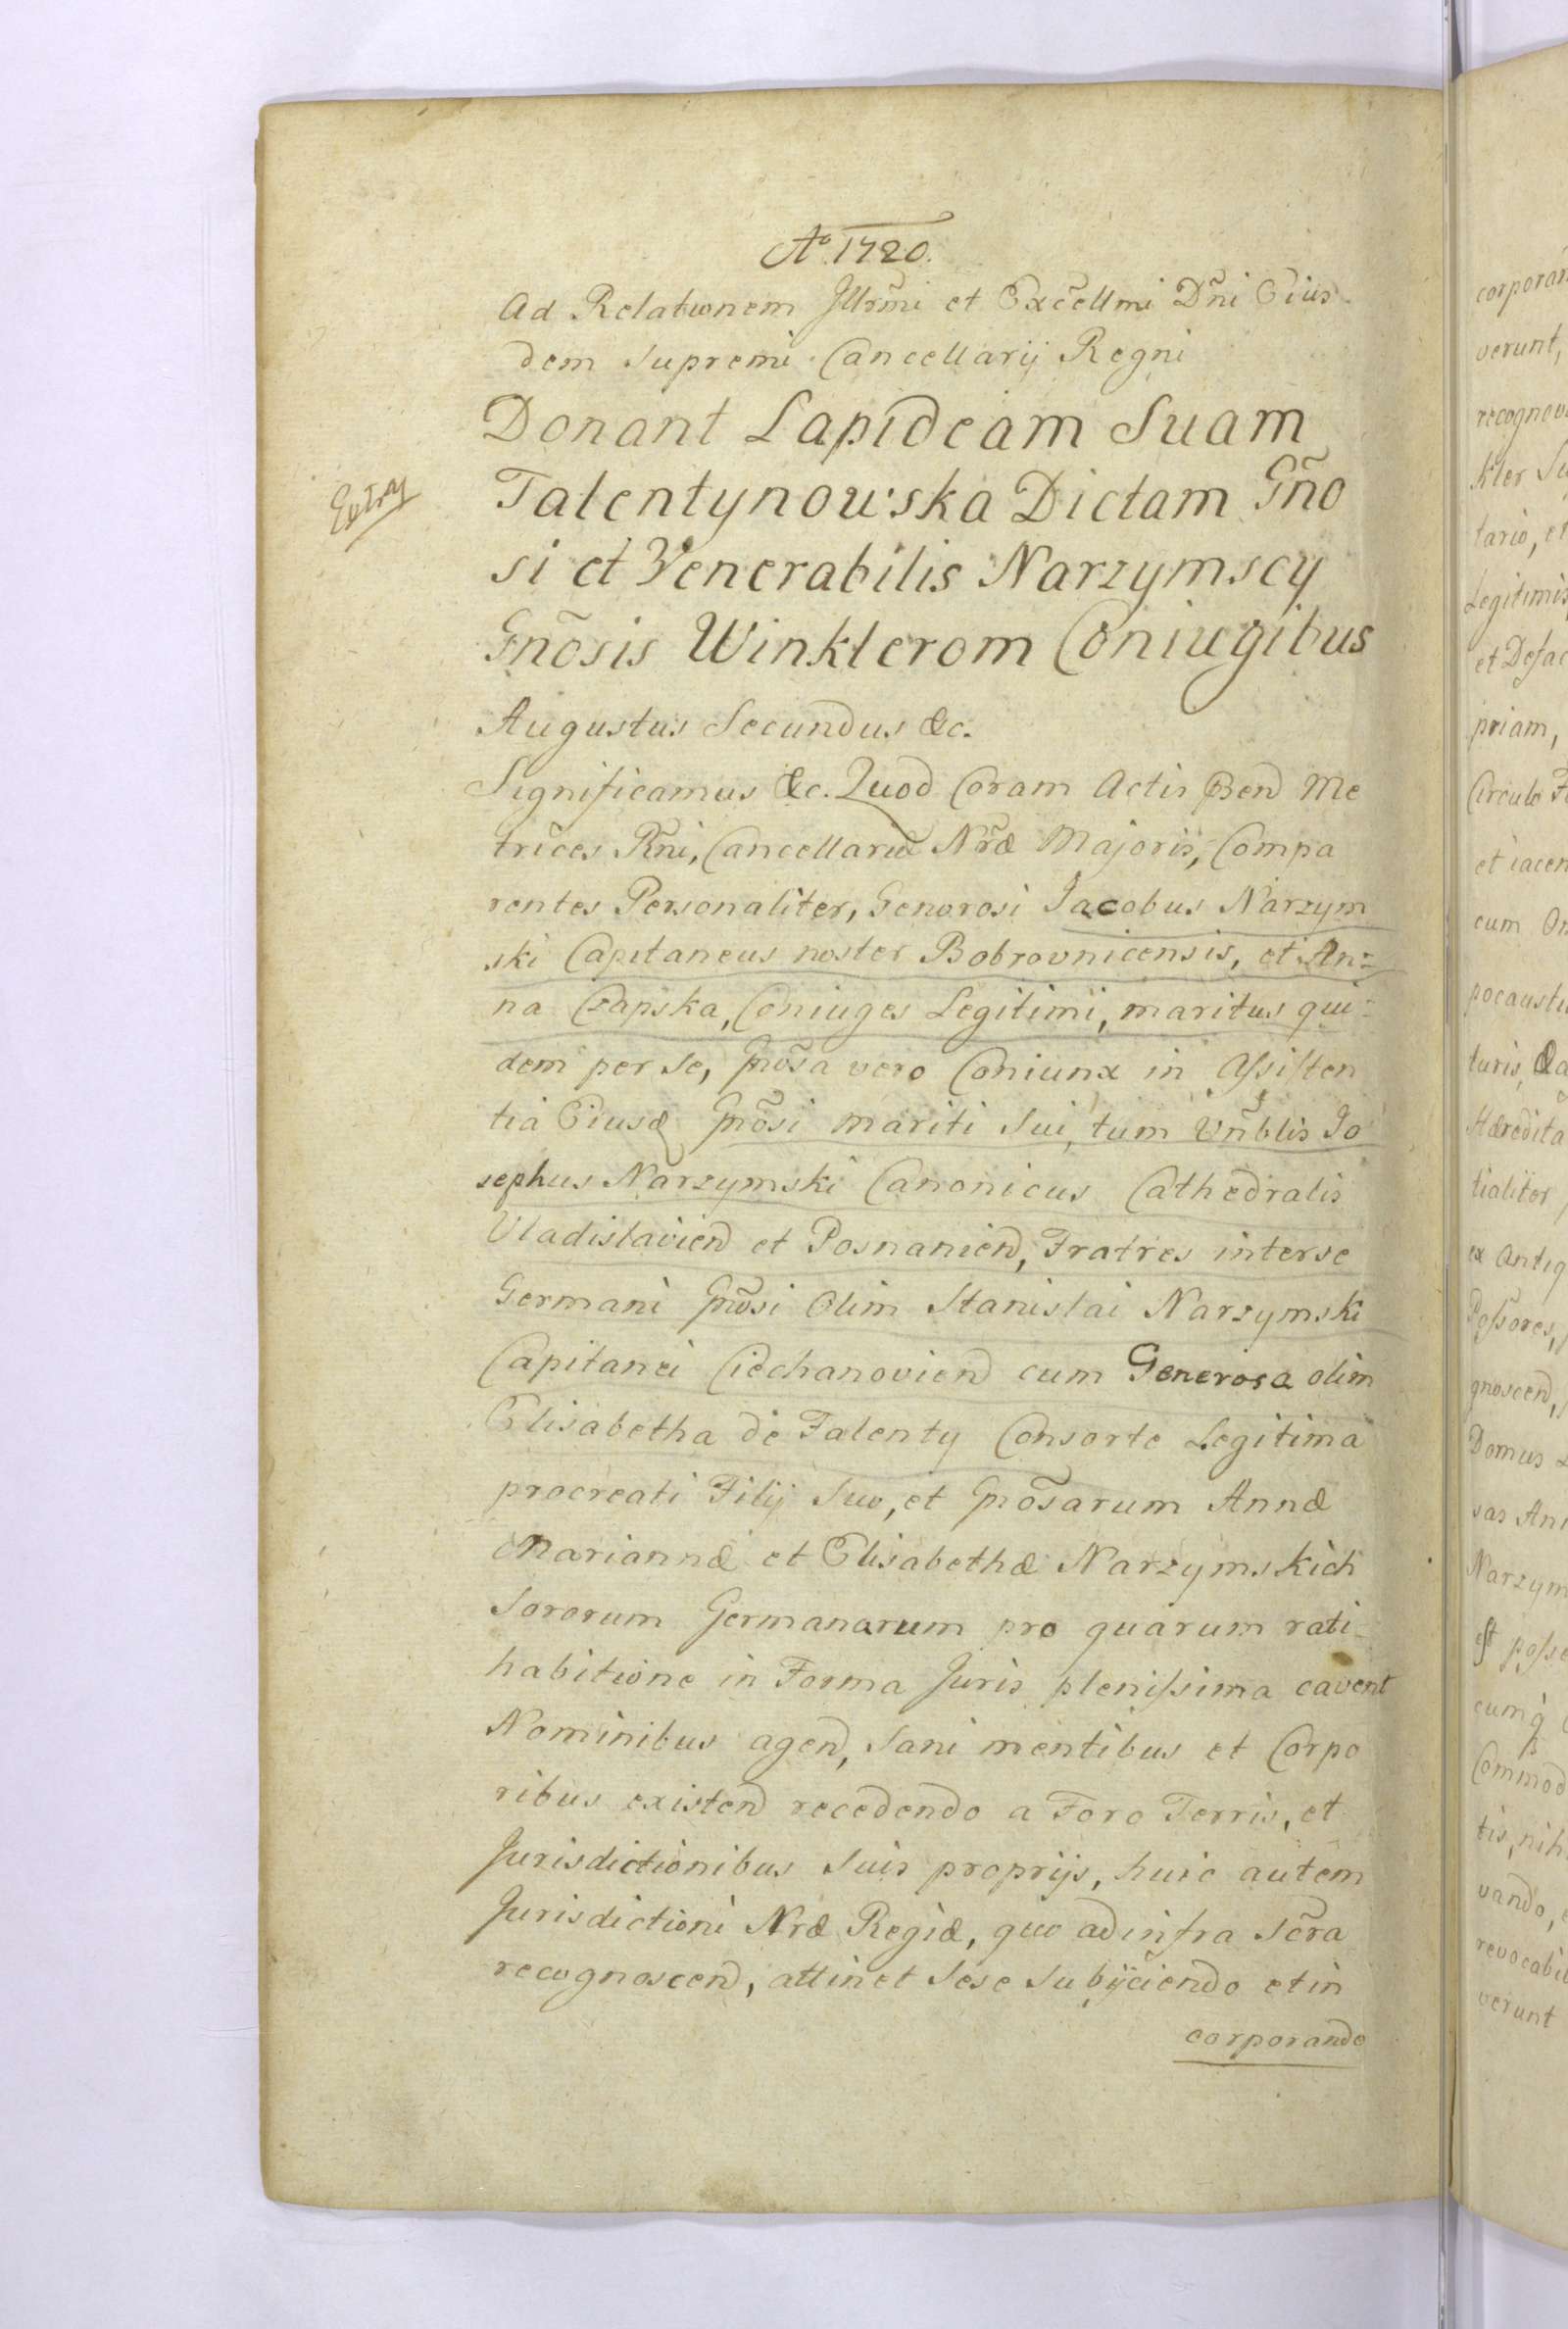 Aº 1720.
Ad Relationem Jllrm̃i et Excẽllmi Dñi Eius
dem Supremi Cancellarij Regni
Donant Lapideam Suam
Talentynowska Dictam Gño
si et Venerabilis Narzymscy
Gnõsis Winklerom Coniugibus
Augustus Secundus &c.
Significamus &c. Quod Coram Actis Pend Me
trices Rñi, Cancellariæ Nr̃æ Majoris, Compa
rentes Personaliter, Generosi Jacobus Narzym
ski Capitaneus noster Bobrovnicensis, et An=
na Czapska, Coniuges Legitimi, maritus qui=
dem per se, Gnõsa vero Coniunx in Assisten
tia Eiusd Gnõsi mariti Sui, tum Vñblis Jo
sephus Narzymski Canonicus Cathedralis
Vladislavien et Posnanien, Fratres interse
Germani Gnõsi Olim Stanislai Narzymski
Capitanei Ciechanovien cum Generosa olim
Elisabetha de Talenty Consorte Legitima
procreati Filij Suo, et Gnõsarum Annæ
Mariannæ et Elisabethæ Narzymskich
Sororum Germanarum pro quarum rati=
habitione in Forma Juris plenissima cavent
Nominibus agend, Sani mentibus et Corpo
ribus existend recedendo a Foro Terris, et
Jurisdictionibus Suis proprijs, huic autem
Jurisdictioni Nræ Regiæ, quo ad infra Scr̃a
recognoscend, attinet Sese Subijciendo et in
corporando
corporan
verunt,
recognov
kler Su
tario, et
Legitimis
et Defac
priam,
Circulo F
et iacen
cum On
pocausti
turis, &a
Hæredita
tialiter,
ex Antiq
Possores,
gnoscend,
Domus L
sas An
Narzym
est posse
cumq
Commod
tis, nih
vando, e
revocabil
verunt